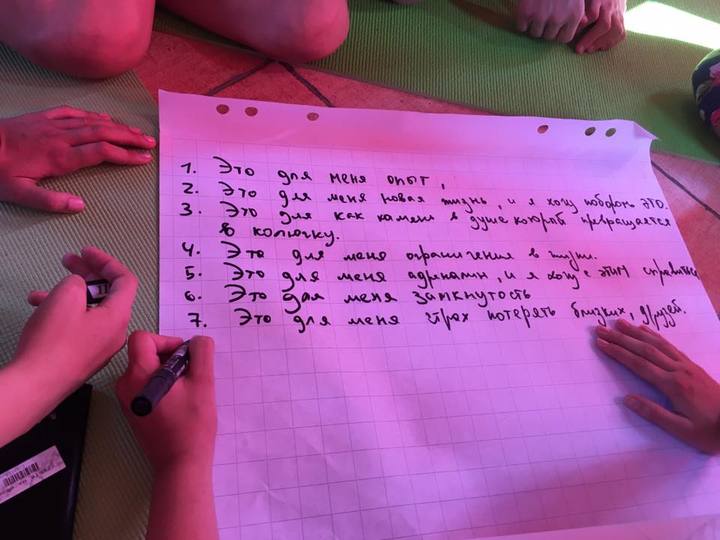 1. Это для меня опыт,
2. Это для меня новая жизнь, и я хочу побороть это.
3. Это для как камень в душе который превращается
в колючку.
4. Это для меня ограничения в жизни.
5. Это для меня адреналин, и я хочу с этим справиться
6. Это для меня замкнутость
7. Это для меня страх потерять близких, друзей.